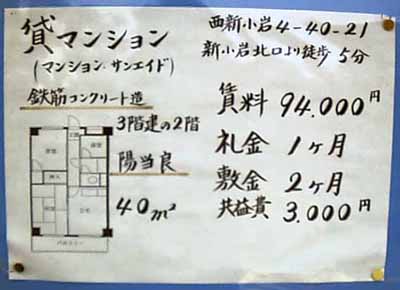 貸マンション
(マンション サンエイド)
鉄筋コンクリート造
3階建の2階
陽当良
40m²
バルコニー
西新小岩4-40-21
新小岩北口より徒歩5分
賃料 94.000円
礼金 1ヶ月
敷金 2ヶ月
共益費 3.000円